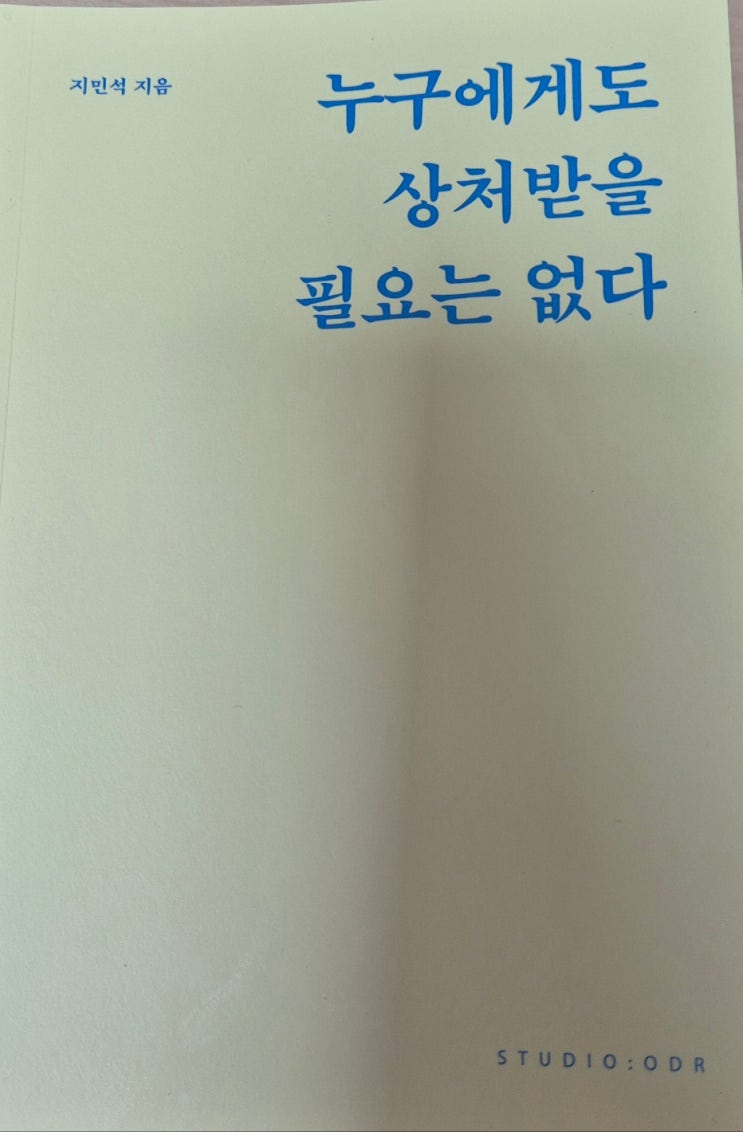 지민석 지음
누구에게도
상처받을
필요는 없다
STUDIO:ODR